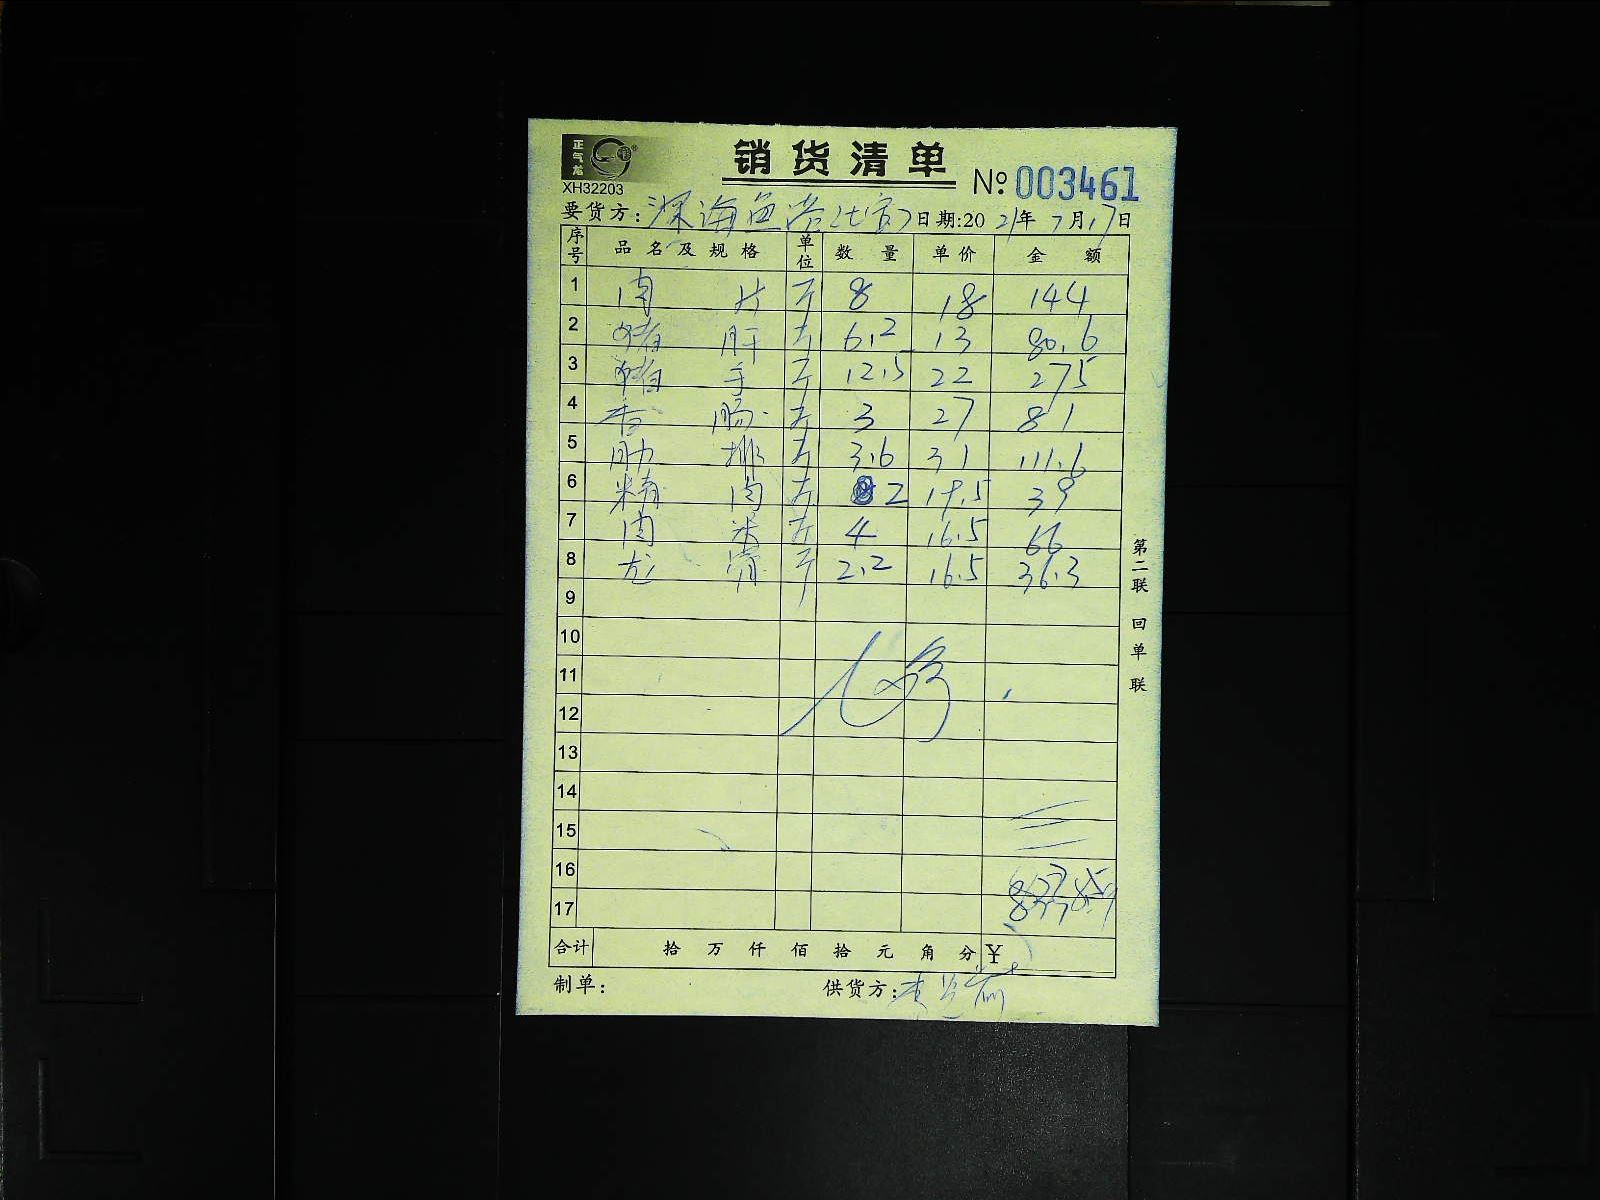 正气龙
销货清单
XH32203
№ 003461
要货方: 深海鱼港 日期:2021年7月17日
序号 品名及规格 单位 数量 单价 金额
1 肉片 斤 8 18 144
2 猪肝 斤 6.2 13 80.6
3 猪手 斤 12.5 22 275
4 香肠 斤 3 27 81
5 肋排 斤 3.6 31 111.6
6 精肉 斤 2 19.5 39
7 肉米 斤 4 16.5 66
8 龙骨 斤 2.2 16.5 36.3
9
10
11
12
13
14
15
16
17
合计 拾万仟佰拾元角分 ¥
制单: 供货方:
第二联 回单联